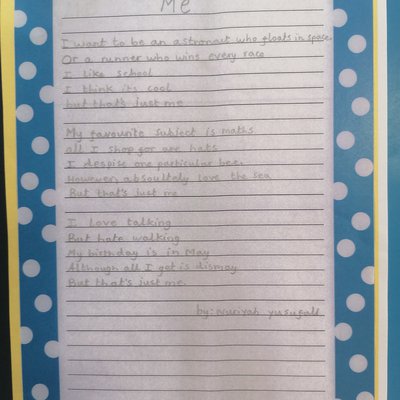 Me
I want to be an astronaut who floats in space.
Or a runner who wins every race
I like school
I think its cool
but that's just me
My favourite subject is maths
all I shop for are hats
I despise one particular bee.
However, absoultely love the sea
But that's just me
I love talking
But hate walking
My birthday is in May
Although all I get is dismay
But that's just me.
by: